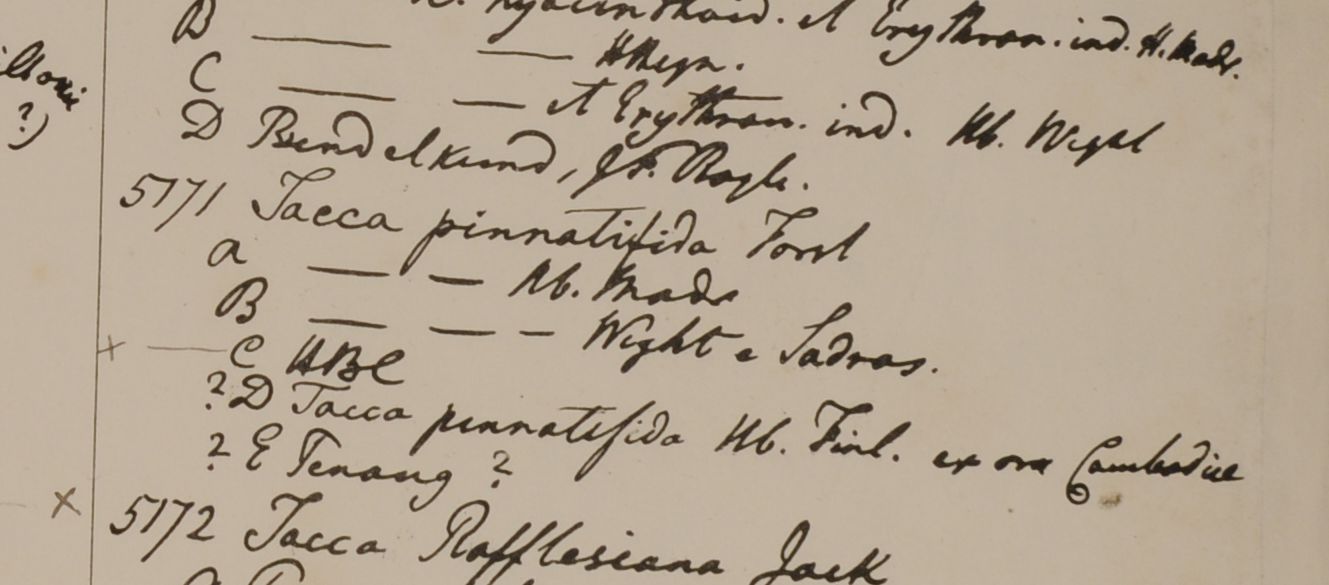 B — — hyacinthoid. et Erythron. ind. H. Madr.
C — — HHeyn.
D — — et Erythron. ind. Hb. Wight
Bundelkund, J.F. Royle.
5171 Tacca pinnatifida Forst
a — — Hb. Madr
B — — — Wight e Sadras.
+ — C HBC
? D Tacca pinnatifida Hb. Finl. ex ora Cambodiae
? E Penang ?
x 5172 Tacca Rafflesiana Jack
?)